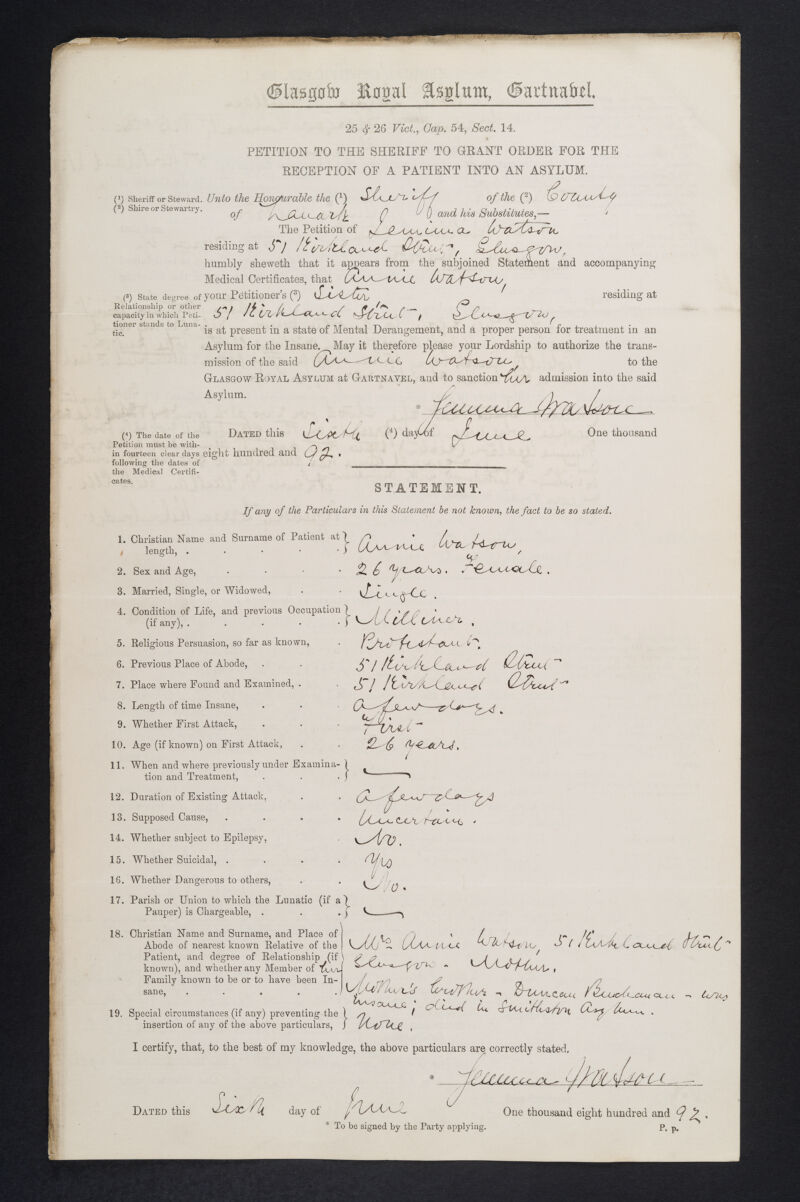 Glasgow Royal Asylum, Gartnabel.
25 & 26 Vict., Cap. 54, Sect. 14.
PETITION TO THE SHERIFF TO GRANT ORDER FOR THE
RECEPTION OF A PATIENT INTO AN ASYLUM.
(¹) Sheriff or Steward. Unto the Honourable the (¹) Sheriff of the (²) County
(²) Shire or Stewartry. of Lanark and his Substitutes,—
The Petition of Jemima Watson
residing at 51 Kirkland Street, Glasgow,
humbly sheweth that it appears from the subjoined Statement and accompanying
Medical Certificates, that Annie Watson,
(³) State degree of Relationship or other capacity in which Petitioner stands to Lunatic. your Petitioner's (³) Sister residing at
51 Kirkland Street, Glasgow,
is at present in a state of Mental Derangement, and a proper person for treatment in an
Asylum for the Insane. May it therefore please your Lordship to authorize the trans-
mission of the said Annie Watson, to the
GLASGOW ROYAL ASYLUM at GARTNAVEL, and to sanction her admission into the said
Asylum.
* Jemima Watson
(⁴) The date of the Petition must be within fourteen clear days following the dates of the Medical Certificates.
DATED this Sixth (⁴) day of June One thousand
eight hundred and 92.
STATEMENT.
If any of the Particulars in this Statement be not known, the fact to be so stated.
1. Christian Name and Surname of Patient at length, . . . . . Annie Watson,
2. Sex and Age, . . . . 26 years. Female.
3. Married, Single, or Widowed, . . Single.
4. Condition of Life, and previous Occupation (if any), . . . . . Milliner.
5. Religious Persuasion, so far as known, . Protestant.
6. Previous Place of Abode, . . . 51 Kirkland Street
7. Place where Found and Examined, . . 51 Kirkland Street
8. Length of time Insane, . . . a few days.
9. Whether First Attack, . . . First
10. Age (if known) on First Attack, . . 26 years.
11. When and where previously under Examina-
tion and Treatment, . . . —
12. Duration of Existing Attack, . . a few days
13. Supposed Cause, . . . . Uncertain.
14. Whether subject to Epilepsy, . No.
15. Whether Suicidal, . . . . Yes
16. Whether Dangerous to others, . . No.
17. Parish or Union to which the Lunatic (if a
Pauper) is Chargeable, . . . —
18. Christian Name and Surname, and Place of
Abode of nearest known Relative of the
Patient, and degree of Relationship (if
known), and whether any Member of her
Family known to be or to have been In-
sane, . . . . .
Mrs Annie Watson, 51 Kirkland Street
Glasgow - Mother.
Mother's brother - Duncan Buchanan - was
insane; died in Smithston Asylum.
19. Special circumstances (if any) preventing the
insertion of any of the above particulars, None.
I certify, that, to the best of my knowledge, the above particulars are correctly stated.
* Jemima Watson
DATED this Sixth day of June One thousand eight hundred and 92.
* To be signed by the Party applying. P. p.